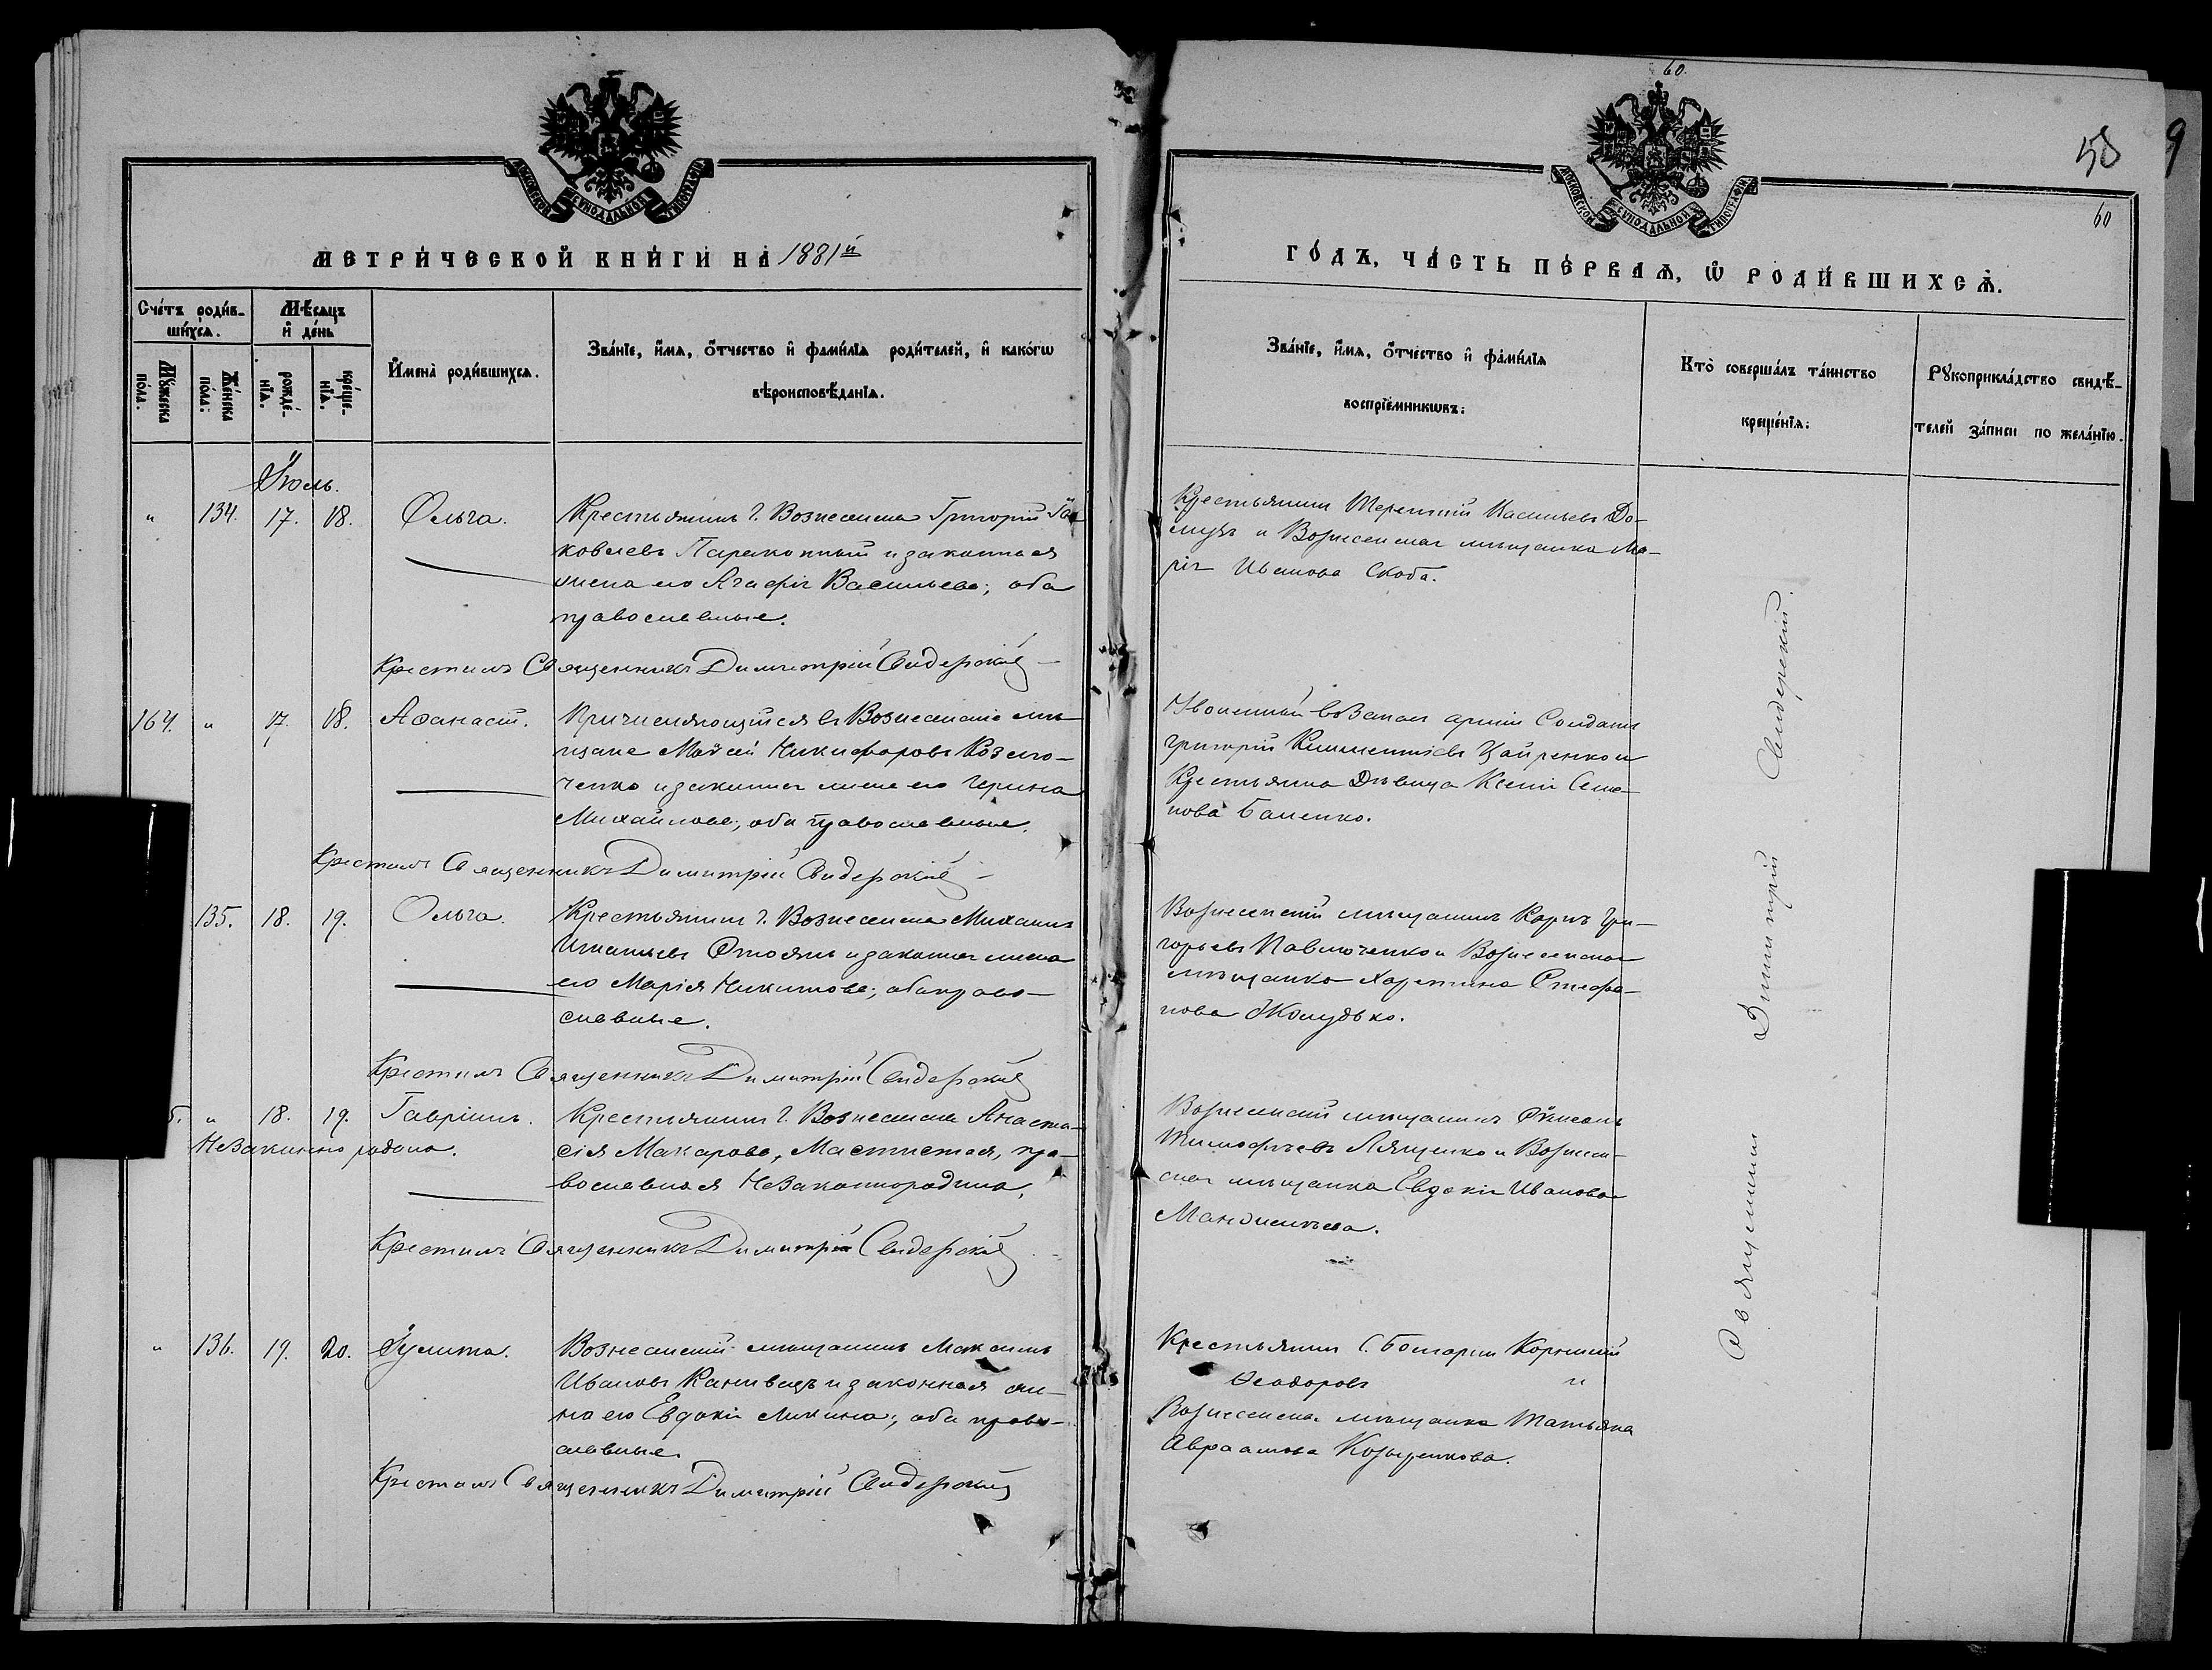 60.
58
9
60
МОСКОВСКОЙ СУНОДАЛЬНОЙ ТИПОГРАФІИ
МОСКОВСКОЙ СУНОДАЛЬНОЙ ТИПОГРАФІИ
МЕТРИ́ЧЕСКОЙ КНИ́ГИ НА̀ 1881й
ГО́ДЪ, ЧА́СТЬ ПЕ́РВАѦ, Ѡ҆ РОДИ́ВШИХСѦ.
Сче́тъ роди́в-
ши́хсѧ.
Му́жеска по́ла.
Же́нска по́ла:
Мѣ́сѧцъ
и҆ де́нь
рожде́-нїѧ.
креще́-нїѧ.
И҆мена̀ роди́вшихсѧ.
Зва́нїе, и҆́мѧ, ѻ҆́тчество и҆ фами́лїѧ роди́телей, и҆ како́гѡ
вѣроисповѣ́данїѧ.
Зва́нїе, и҆́мѧ, ѻ҆́тчество и҆ фами́лїѧ
воспрїе́мникѡвъ:
Кто̀ соверша́лъ та́инство
креще́нїѧ:
Рꙋкоприкла́дство свидѣ́-
телей за́писи по жела́нїю.
Іюль.
" 134. 17. 18. Ольга. Крестьянинъ г. Вознесенска Григорій Іа-
ковлевъ Параконный и законная
жена его Агафія Васильева; оба
православные.
Крестьянинъ Терентій Васильевъ До-
лиу и Вознесенская мѣщанка Ма-
рія Иванова Скоба.
Крестилъ Священникъ Димитрій Свидерскій
164. " 17. 18. Аѳанасій. Причисляющійся въ Вознесенскіе мѣ-
щане Моѵсей Никифоровъ
ченко и законная жена его Ирина
Михайлова; оба православные.
Уволенный въ Запасъ арміи Солдатъ
Григорій Климентіевъ и
Крестьянка Дѣвица Ксенія Семе-
нова Баленко.
Крестилъ Священникъ Димитрій Свидерскій
135. 18. 19. Ольга. Крестьянинъ г. Вознесенска Михаилъ
Игнатьевъ Стоянъ и законная жена
его Марія Никитова; оба право-
славные.
Вознесенскій мѣщанинъ Карпъ Гри-
горьевъ Павлюченко и Вознесенская
мѣщанка Харитина Стефа-
нова Жолудько.
Крестилъ Священникъ Димитрій Свидерскій
5. " 18. 19. Гавріилъ. Крестьянки г. Вознесенска Анаста-
Незаконно родана. сія Макарова, пра-
вославная Незаконнородила.
Вознесенскій мѣщанинъ
Тимофѣевъ Лященко и Вознесен-
ская мѣщанка Евдокія Иванова
Крестилъ Священникъ Димитрій Свидерскій
" 136. 19. 20. Іулита. Вознесенскій мѣщанинъ Максимъ
Ивановъ Канивецъ и законная же-
на его Евдокія Лукина; оба право-
славные.
Крестьянинъ С. Болгарки Корнилій
Ѳеодоровъ и
Вознесенская мѣщанка Татьяна
Авраамова
Крестилъ Священникъ Димитрій Свидерскій
Священникъ Димитрій Свидерскій.